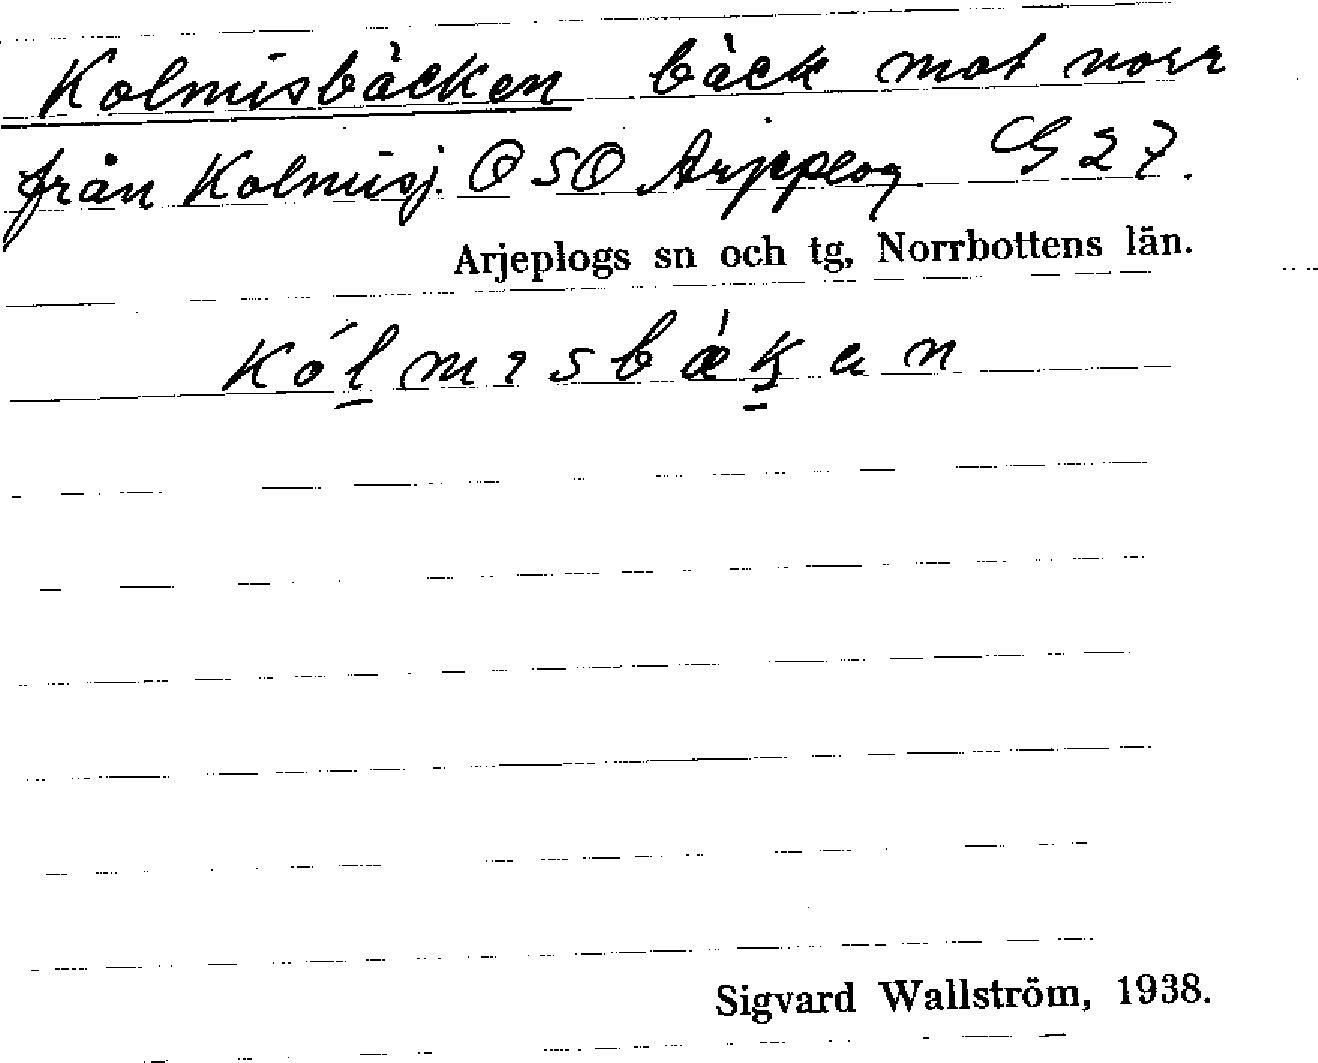 Kolmisbäcken bäck mot norr
från Kolmisj. O SO Arjeplog G 27.
Arjeplogs sn och tg, Norrbottens län.
kól̲mısbǽk̲an
Sigvard Wallström, 1938.